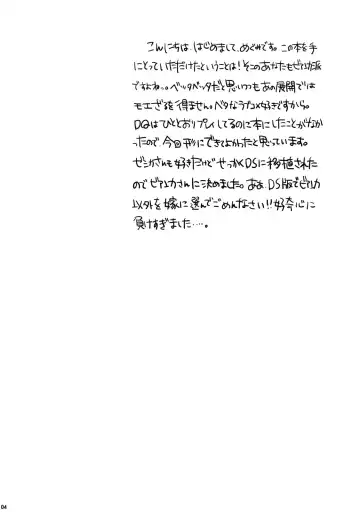 こんにちは、はじめまして、めぐみです。この本を手
にとっていただけたということは!そこのあなたもビアンカ派
ですよね。。ベッタベッタだと思いつつもあの展開では
モエざるを得ません。ベタなラブコメ好きですから。
DQはひととおりプレイしてるのに本にしたことがなか
ったので今回形にできてよかったと思っています。
ゼシカさんも好きだけどせっかくDSに移植された
のでビアンカさんに決めました。あぁ、DS版でビアンカ
以外を嫁に選んでごめんなさい!!好奇心に
負けすぎました・・・・。
04